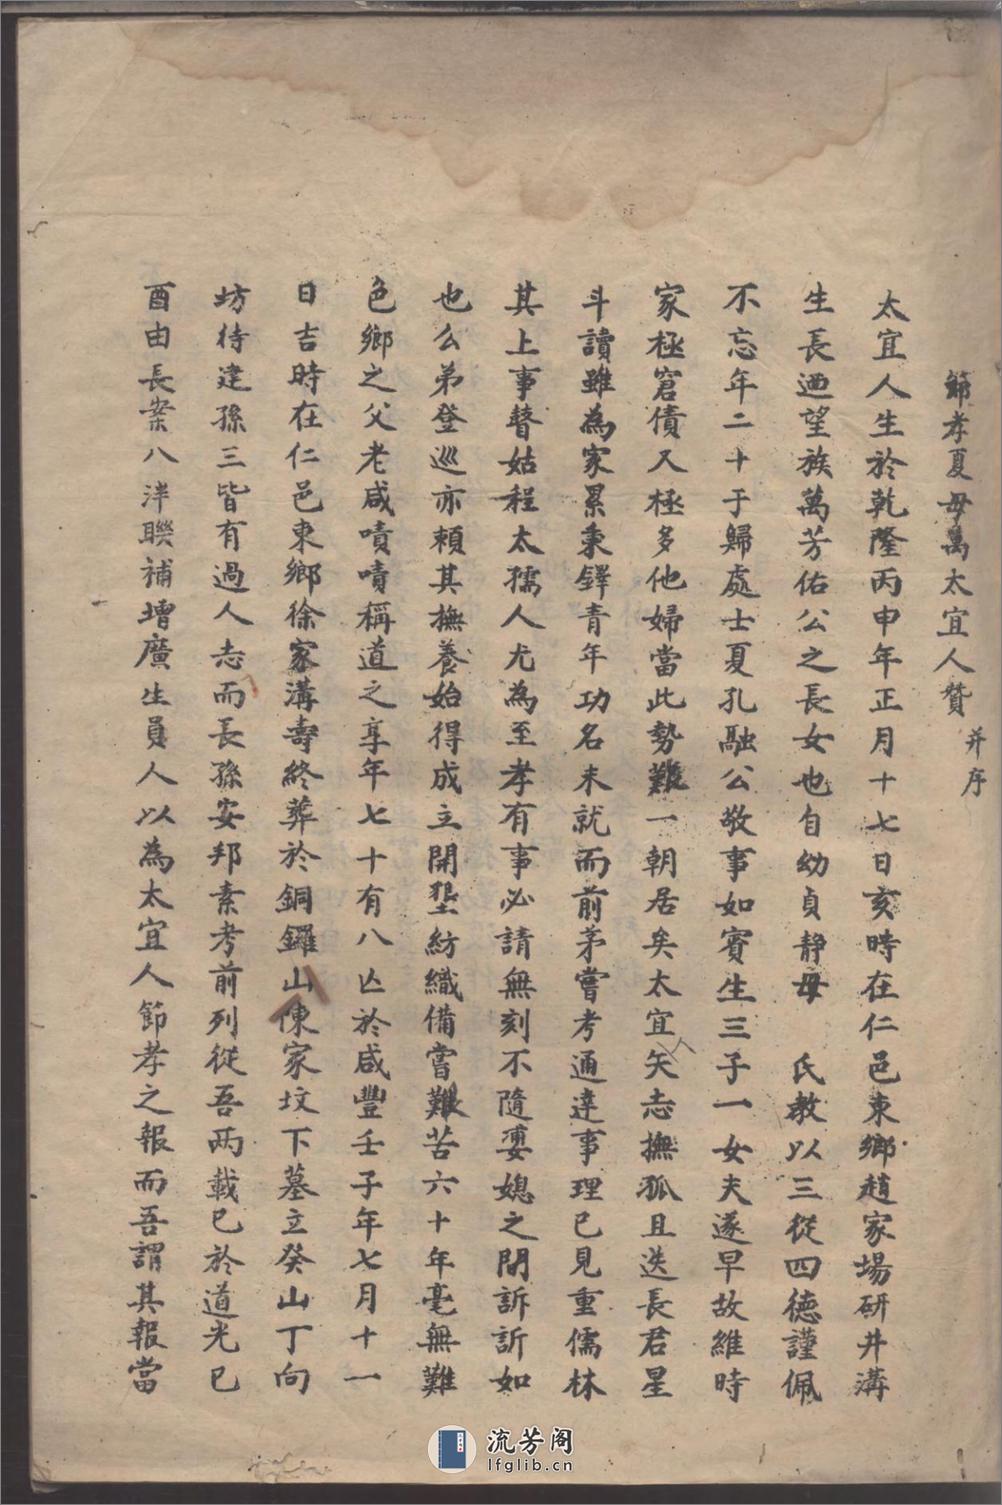 節孝夏母萬太宜人贊 并序
太宜人生於乾隆丙申年正月十七日亥時在仁邑東鄉趙家場研井溝
生長迺望族萬芳佑公之長女也自幼貞靜母 氏教以三從四德謹佩
不忘年二十于歸處士夏孔融公敬事如賓生三子一女夫遂早故維時
家極窘債又極多他婦當此勢難一朝居矣太宜矢志撫孤且迭長君星
斗讀雖為家累秉鐸青年功名未就而前茅嘗考通達事理已見重儒林
其上事瞽姑程太孺人尤為至孝有事必請無刻不隨婆媳之間訴訴如
也么弟登巡亦賴其撫養始得成立開墾紡織備嘗艱苦六十年毫無難
色鄉之父老咸嘖嘖稱道之享年七十有八亡於咸豐壬子年七月十一
日吉時在仁邑東鄉徐家溝壽終葬於銅鑼山陳家坟下墓立癸山丁向
坊待建孫三皆有過人志而長孫安邦素考前列從吾兩載已於道光己
酉由長案入泮聯補增廣生員人以為太宜人節孝之報而吾謂其報當
流芳阁
lfglib.cn